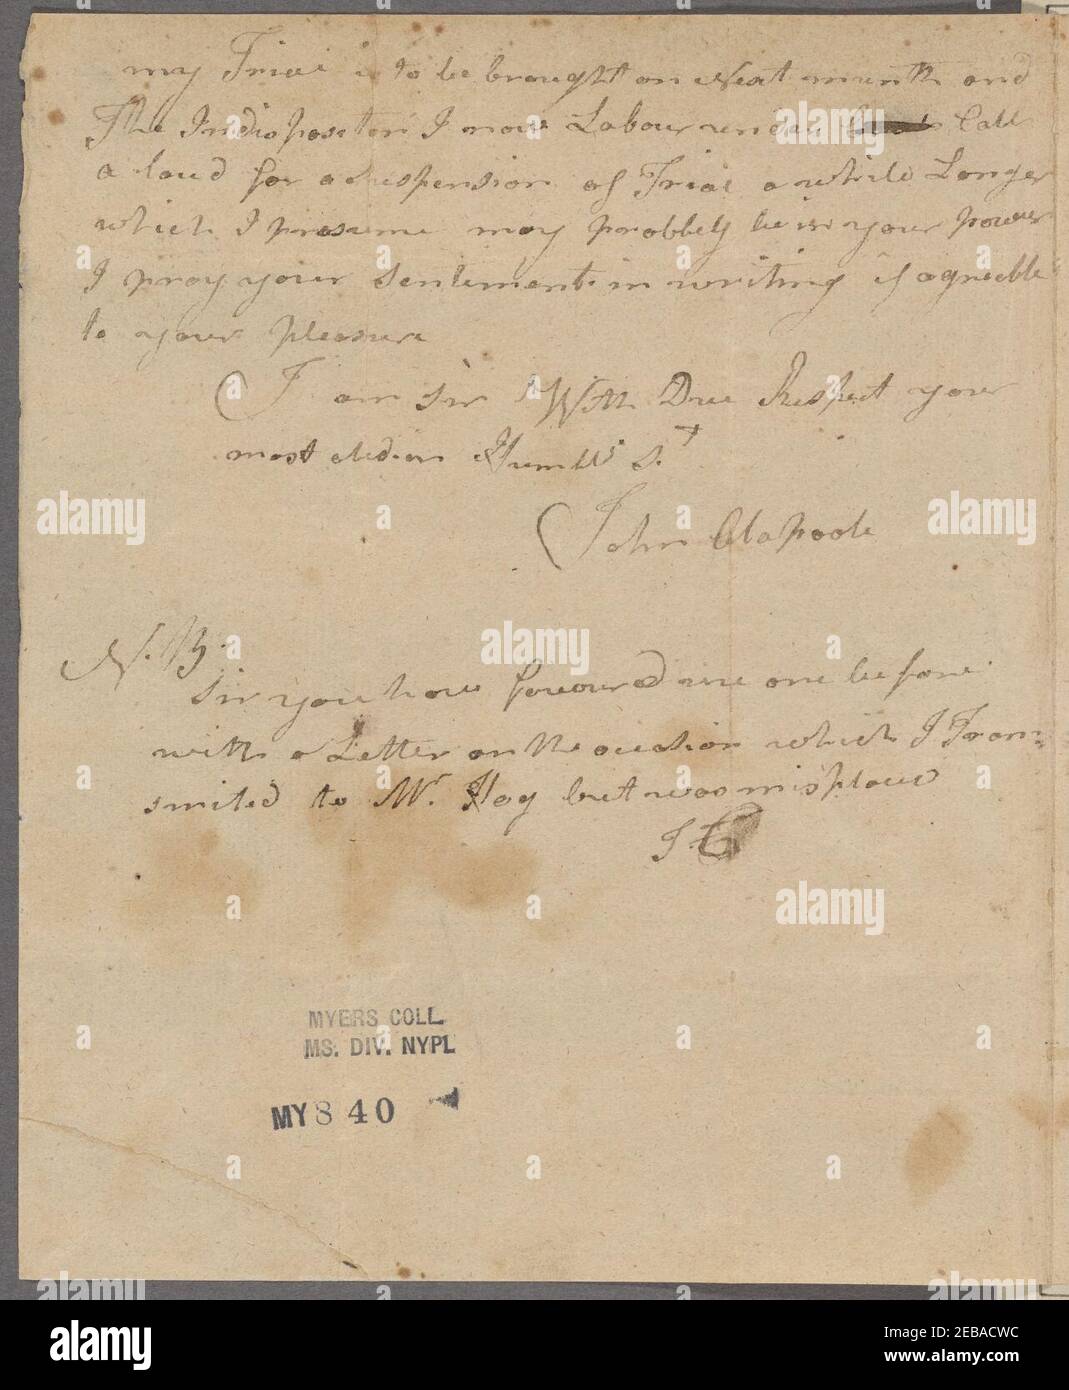 my Trial is to be brought on Next month and
The Indisposition I now Labour under Call
a loud for a suspension of Trial a while Longer
which I presume may probbely be in your power
I pray your sentiments in writing if agreeble
to your pleasure
I am Sir With Due Respect your
most Humble St
John Clapoole
N.B.
Sir you have favoured me one before
with a Letter on the occasion which I Tran=
smited to Mr. Hog but was misplaced
J C
MYERS COLL.
MS. DIV. NYPL
MY 8 40
alamy
Image ID: 2EBACWC
www.alamy.com